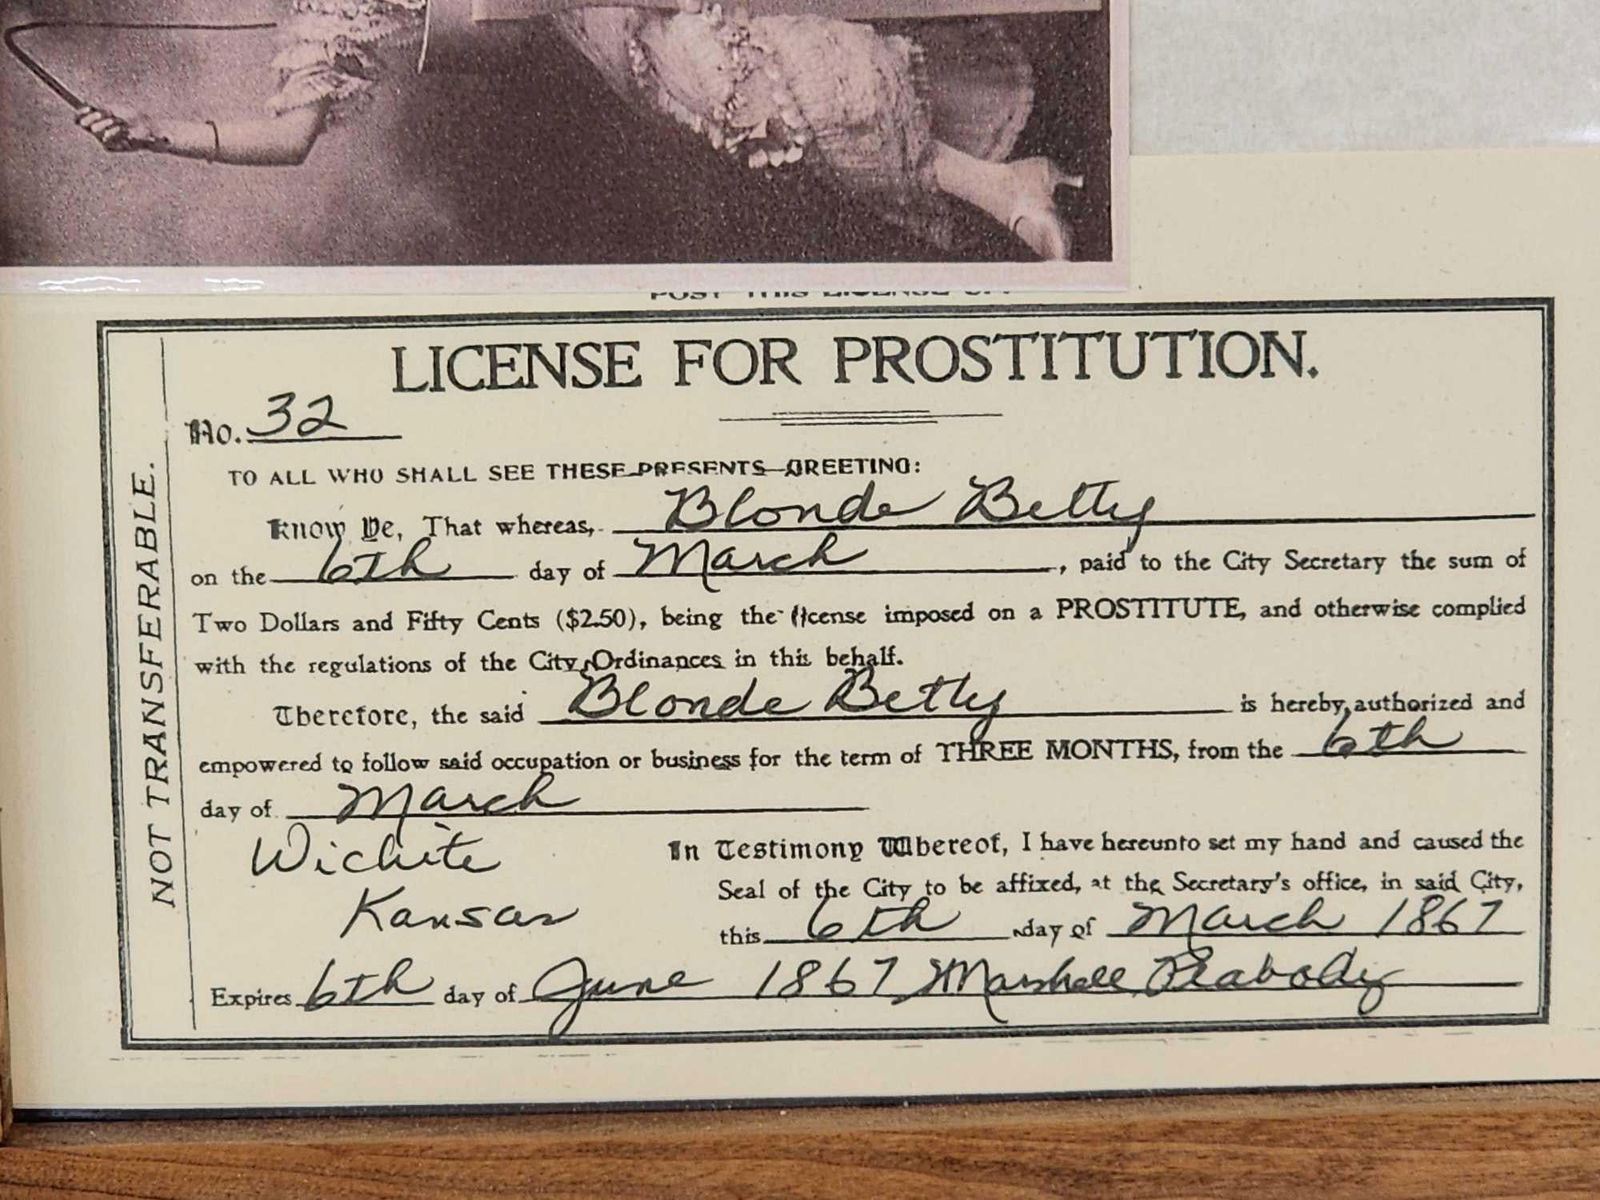 POST THIS LICENSE
LICENSE FOR PROSTITUTION.
No. 32
NOT TRANSFERABLE.
TO ALL WHO SHALL SEE THESE PRESENTS GREETING:
Know Ye, That whereas, Blonde Betty
on the 6th day of March, paid to the City Secretary the sum of
Two Dollars and Fifty Cents ($2.50), being the license imposed on a PROSTITUTE, and otherwise complied
with the regulations of the City Ordinances in this behalf.
Therefore, the said Blonde Betty is hereby authorized and
empowered to follow said occupation or business for the term of THREE MONTHS, from the 6th
day of March
Wichita
Kansas
In Testimony Whereof, I have hereunto set my hand and caused the
Seal of the City to be affixed, at the Secretary's office, in said City,
this 6th day of March 1867
Expires 6th day of June 1867 Marshall Peabody